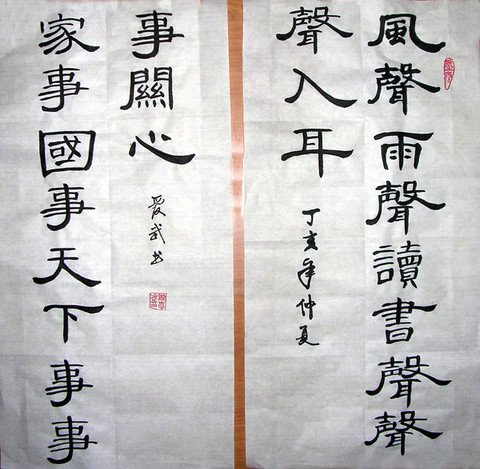 風聲雨聲讀書聲聲
聲入耳
丁亥年仲夏
家事國事天下事事
事關心
愛武书